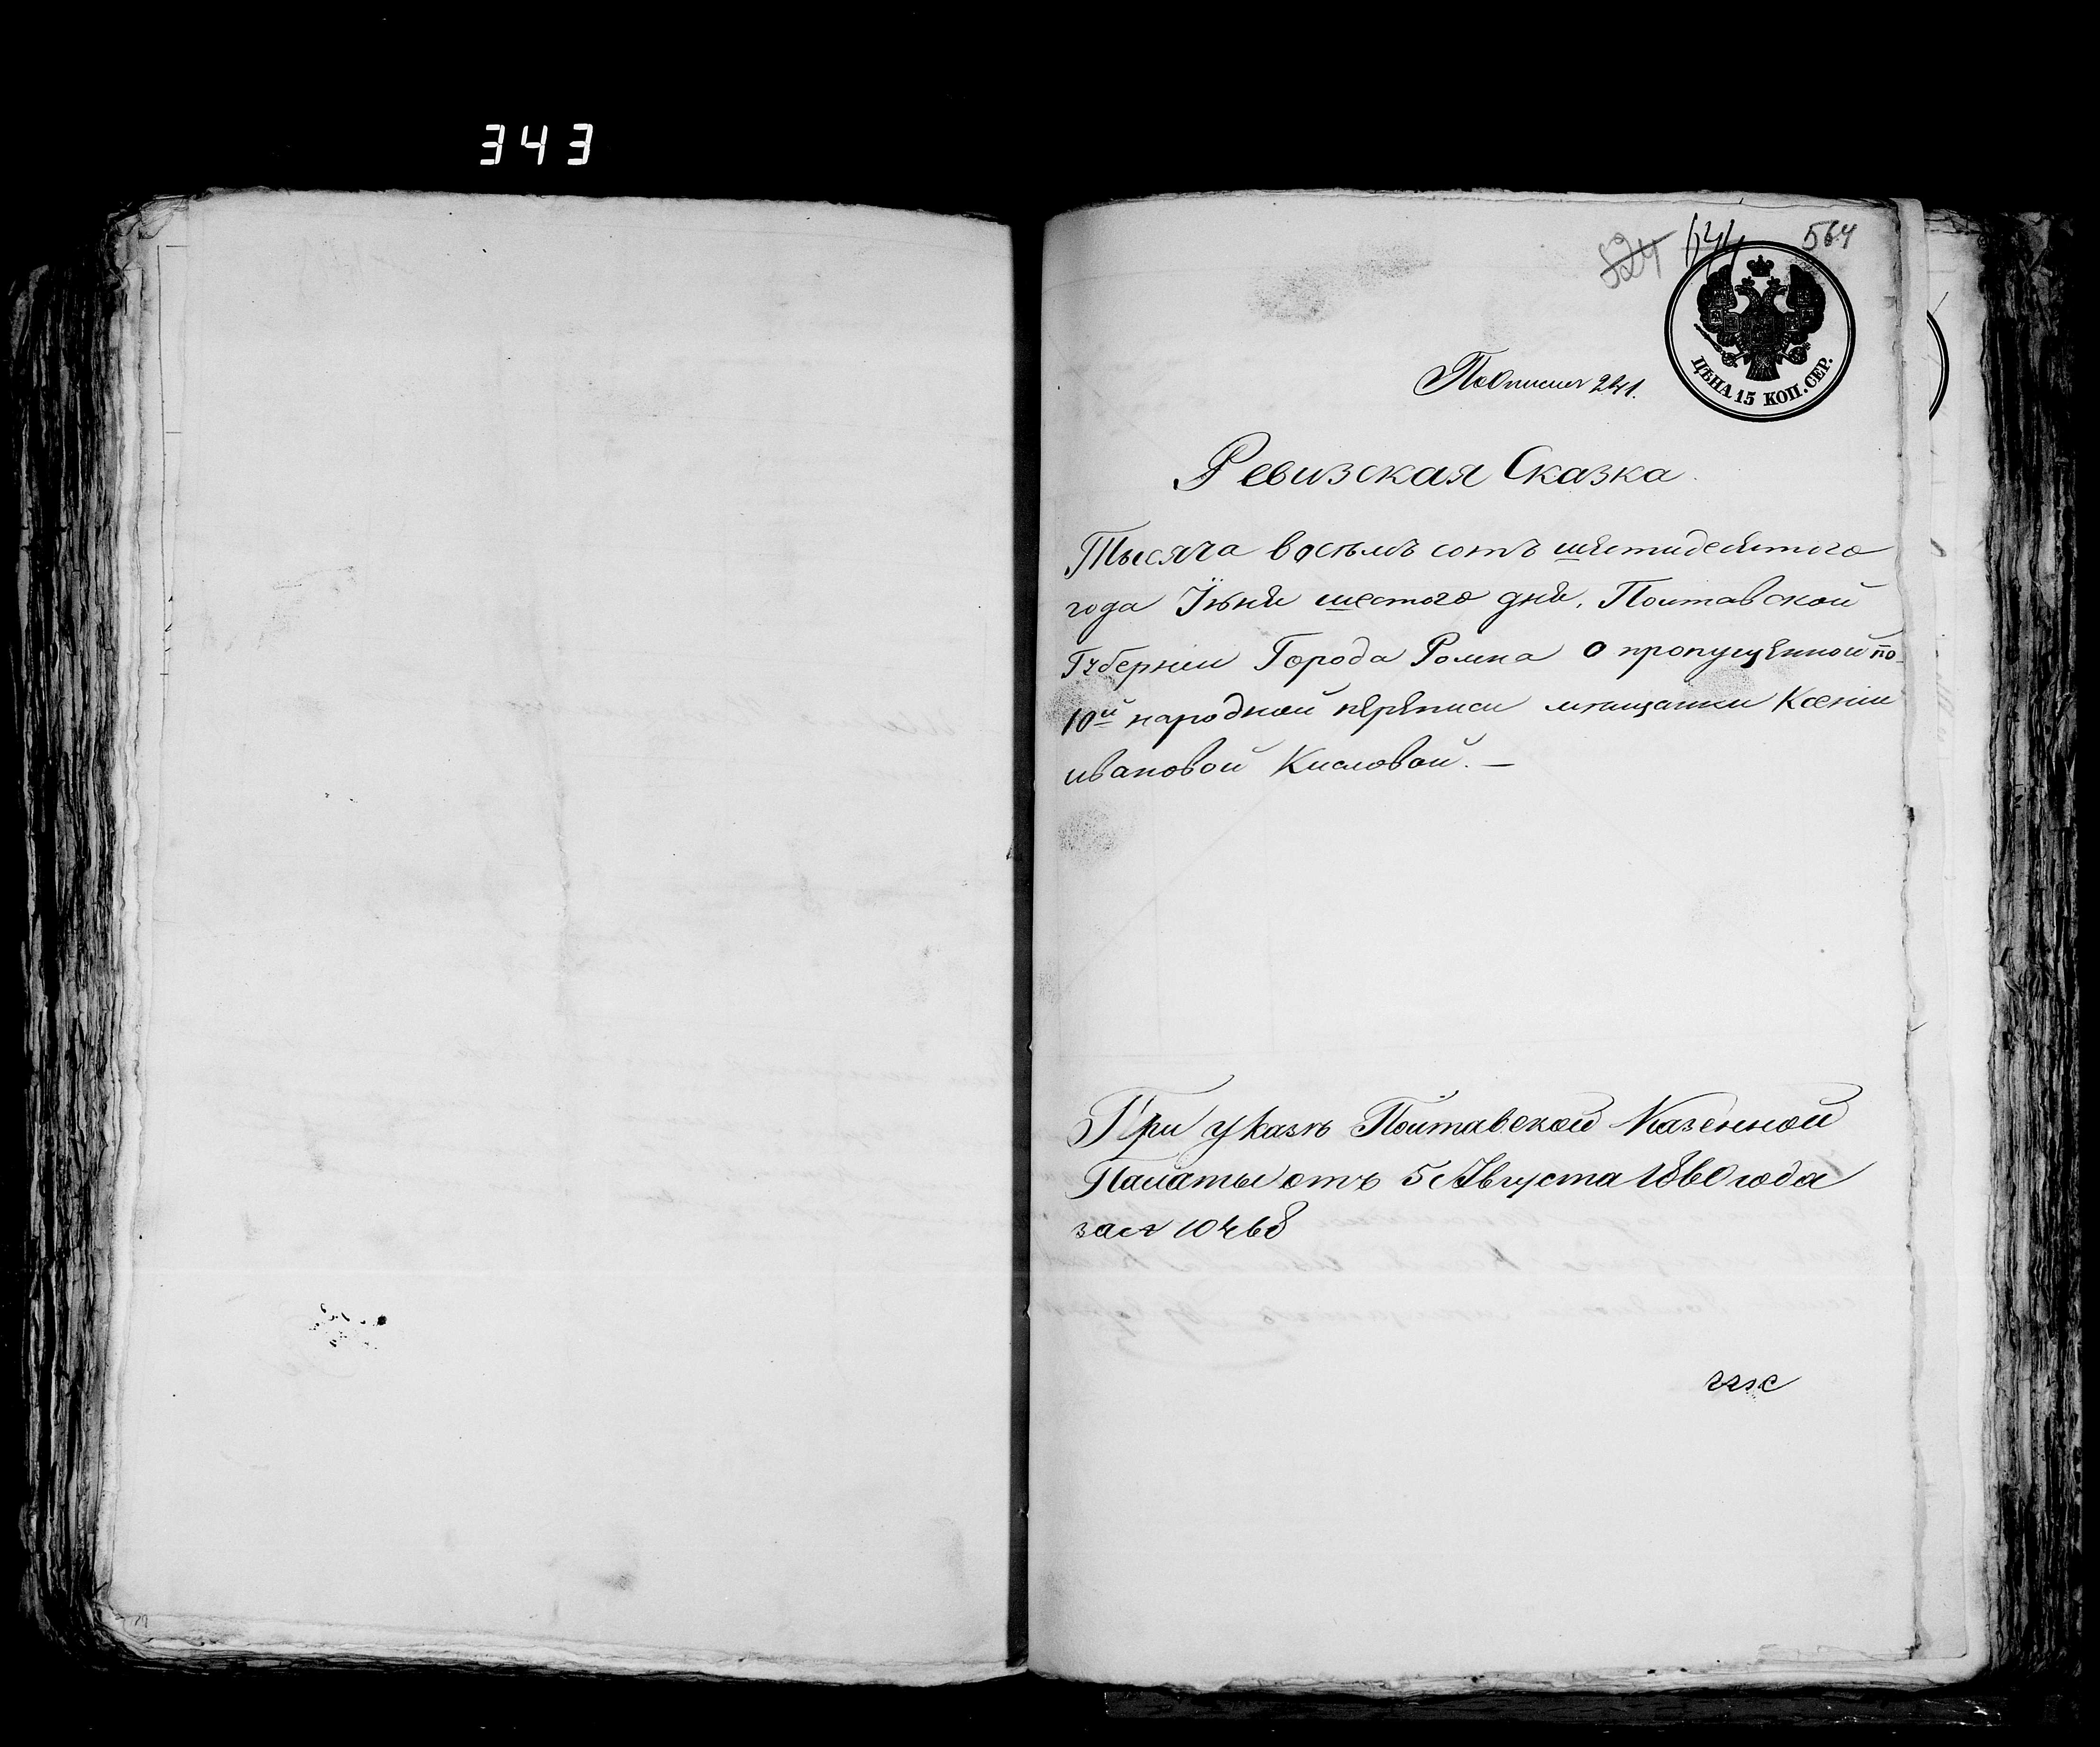 343
524 644 564
ЦѢНА 15 КОП. СЕР.
По описи 241.
Ревизская Сказка.
Тысяча восѣмъ сотъ шѣстидесятого
года Іюня шестого дня, Полтавской
Губерніи Города Ромна О пропущѣнной по
10й народной пѣрѣписи мѣщанки Ксеніи
ивановой Кисловой. —
При указѣ Полтавской Казенной
Палаты отъ 5 Августа 1860 года
за №